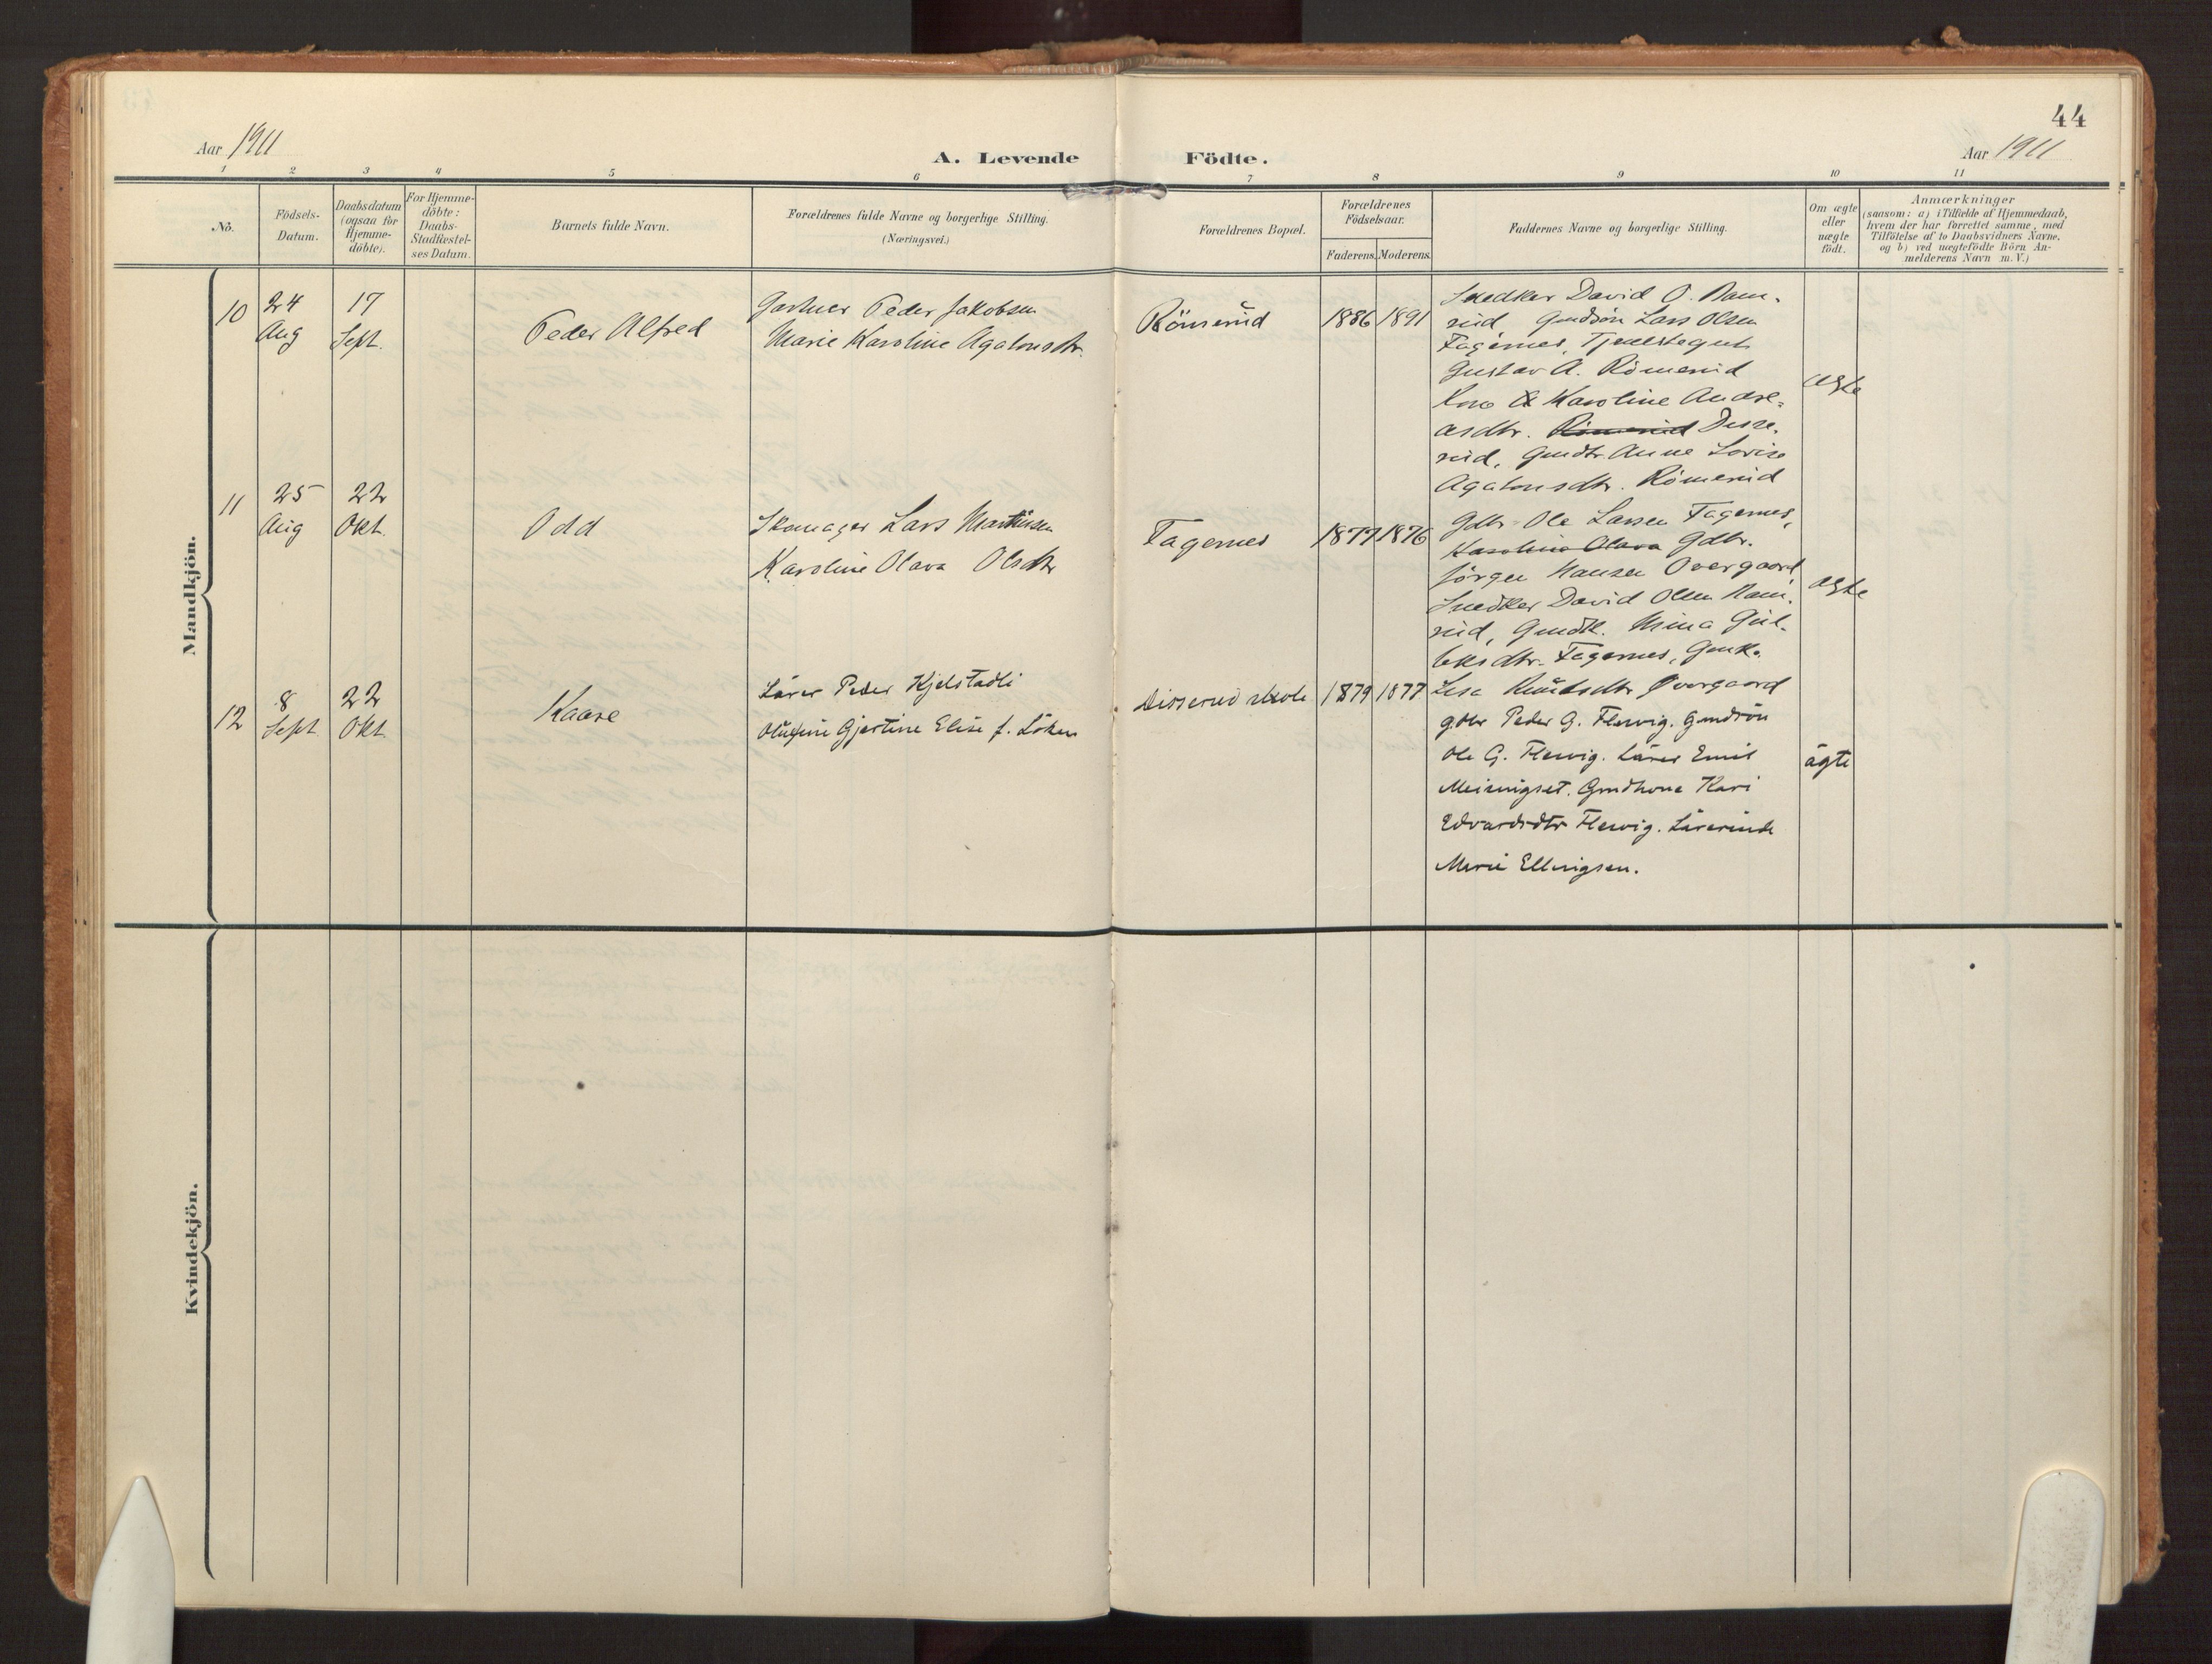 44
Aar 1911
A. Levende Födte.
Aar 1911
1 2 3 4 5 6 7 8 9 10 11
No.
Födsels-Datum.
Daabsdatum (ogsaa for Hjemme-döbte).
For Hjemme-döbte: Daabs-Stadfæstel-ses Datum.
Barnets fulde Navn.
Forældrenes fulde Navne og borgerlige Stilling.
(Næringsvei.)
Forældrenes Bopæl.
Forældrenes Födselsaar.
Faderens. Moderens.
Faddernes Navne og borgerlige Stilling.
Om ægte eller uægte födt.
Anmærkninger
(saasom: a) i Tilfælde af Hjemmedaab,
hvem der har forrettet samme, med
Tilföielse af to Daabsvidners Navne,
og b) ved uægtefödte Börn An-
melderens Navn m. V.)
Mandkjön.
10
24 Aug
17 Sept.
Peder Alfred
Gartner Peder Jakobsen
Marie Karoline Agatonsdtr.
Römerud
1886 1891
Snedker David O. Ram-
rud, Gmdsön Lars Olsen
Fagernes, Tjenestegut
Gustav A. Römerud
Kone Karoline Andre-
asdtr. Römerud Disse-
rud, Gmdtr. Anne Lovise
Agatonsdtr. Römerud
ægte
11
25 Aug
22 Okt.
Odd
Skomager Lars Martinsen
Karoline Olava Olsdtr
Fagernes
1877 1876
Gdbr. Ole Larsen Fagernes,
Karoline Olava Gdbr.
Jörgen Hansen Overgaard,
Snedker David Olsen Ram-
rud, Gmdtr. Mina Gul-
beksdtr. Fagernes, Gmk.
Lisa Knudsdtr Overgaard
ægte
12
8 Sept
22 Okt.
Kaare
Lärer Peder Kjelstadli
Olufine Gjertine Elise f. Löken
Disserud skole
1879 1877
gdbr Peder G. Flesvig. Gmdsön
Ole G. Flesvig. Lärer Emil
Meisingset. Gmdkone Kari
Edvardsdtr Flesvig. Lärerinde
Marie Ellingsen.
ägte
Kvindekjön.